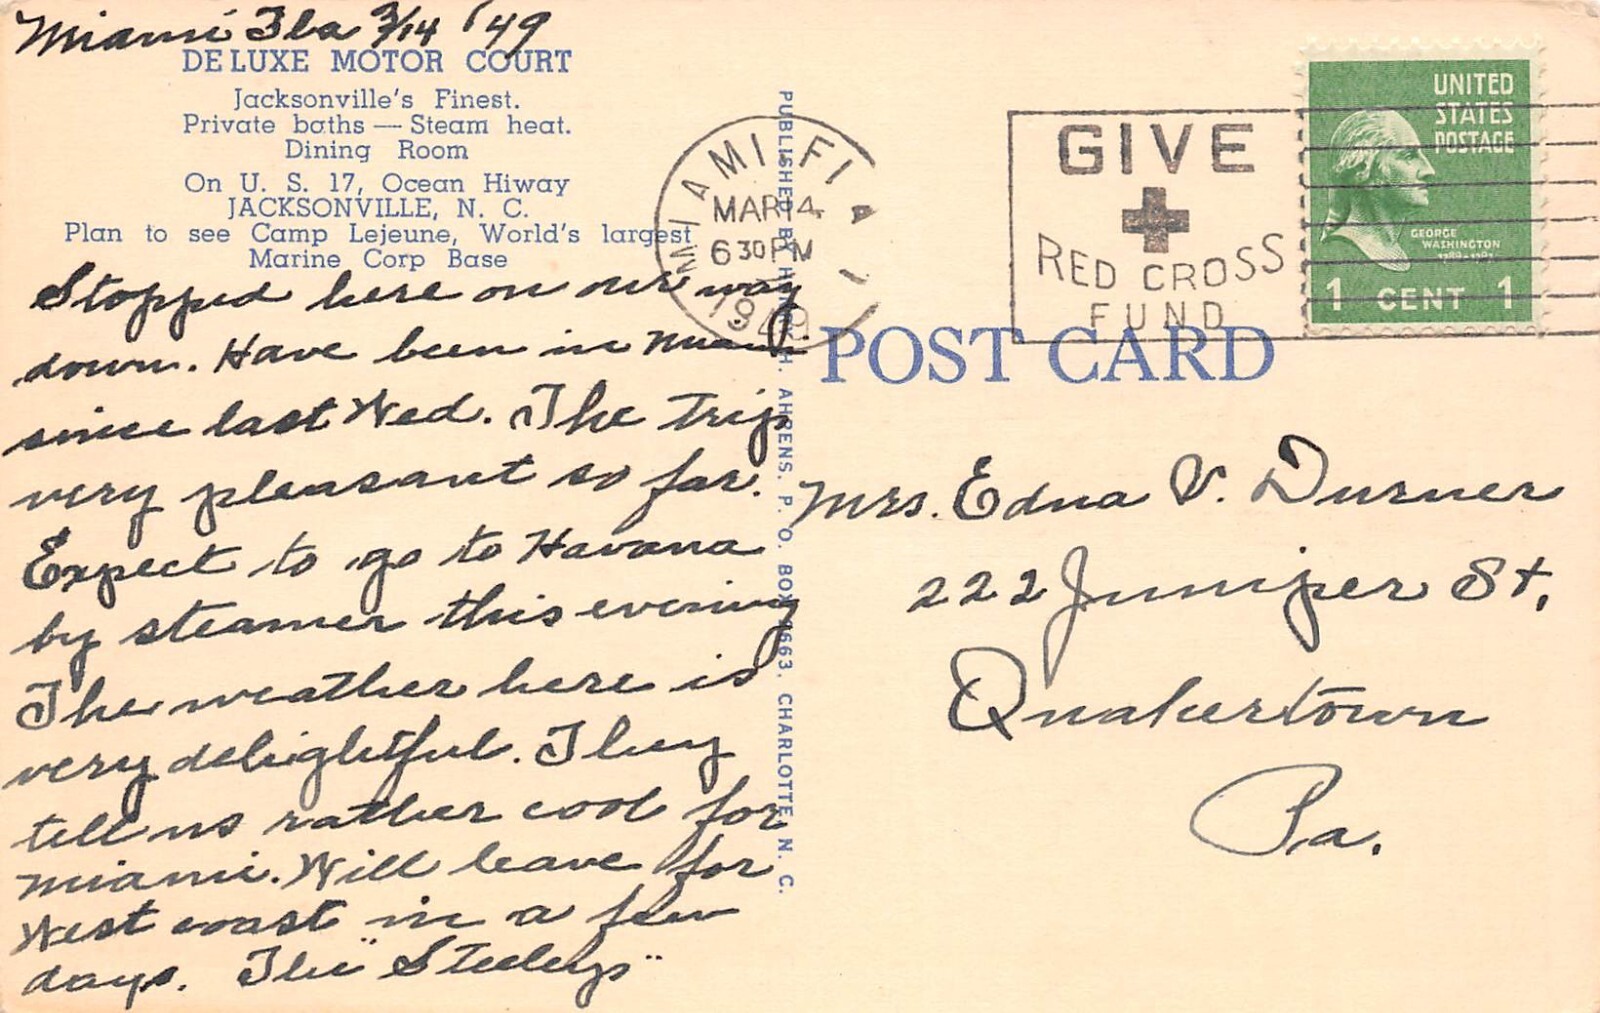 Miami Fla 3/14 '49
DE LUXE MOTOR COURT
Jacksonville's Finest.
Private baths — Steam heat.
Dining Room
On U. S. 17, Ocean Hiway
JACKSONVILLE, N. C.
Plan to see Camp Lejeune, World's largest
Marine Corp Base
Stopped here on our way
down. Have been in Miami
since last Wed. The trip
very pleasant so far.
Expect to go to Havana
by steamer this evening
The weather here is
very delightful. They
tell us rather cool for
Miami. Will leave for
West coast in a few
days. The "Steeleys"
PUBLISHED BY H. AHRENS. P. O. BOX 1663. CHARLOTTE, N. C.
MIAMI, FLA
MAR 14
6 30 PM
1949
GIVE
RED CROSS
FUND
UNITED
STATES
POSTAGE
GEORGE
WASHINGTON
1789-1797
1 CENT 1
POST CARD
Mrs. Edna V. Durner
222 Juniper St,
Quakertown
Pa.